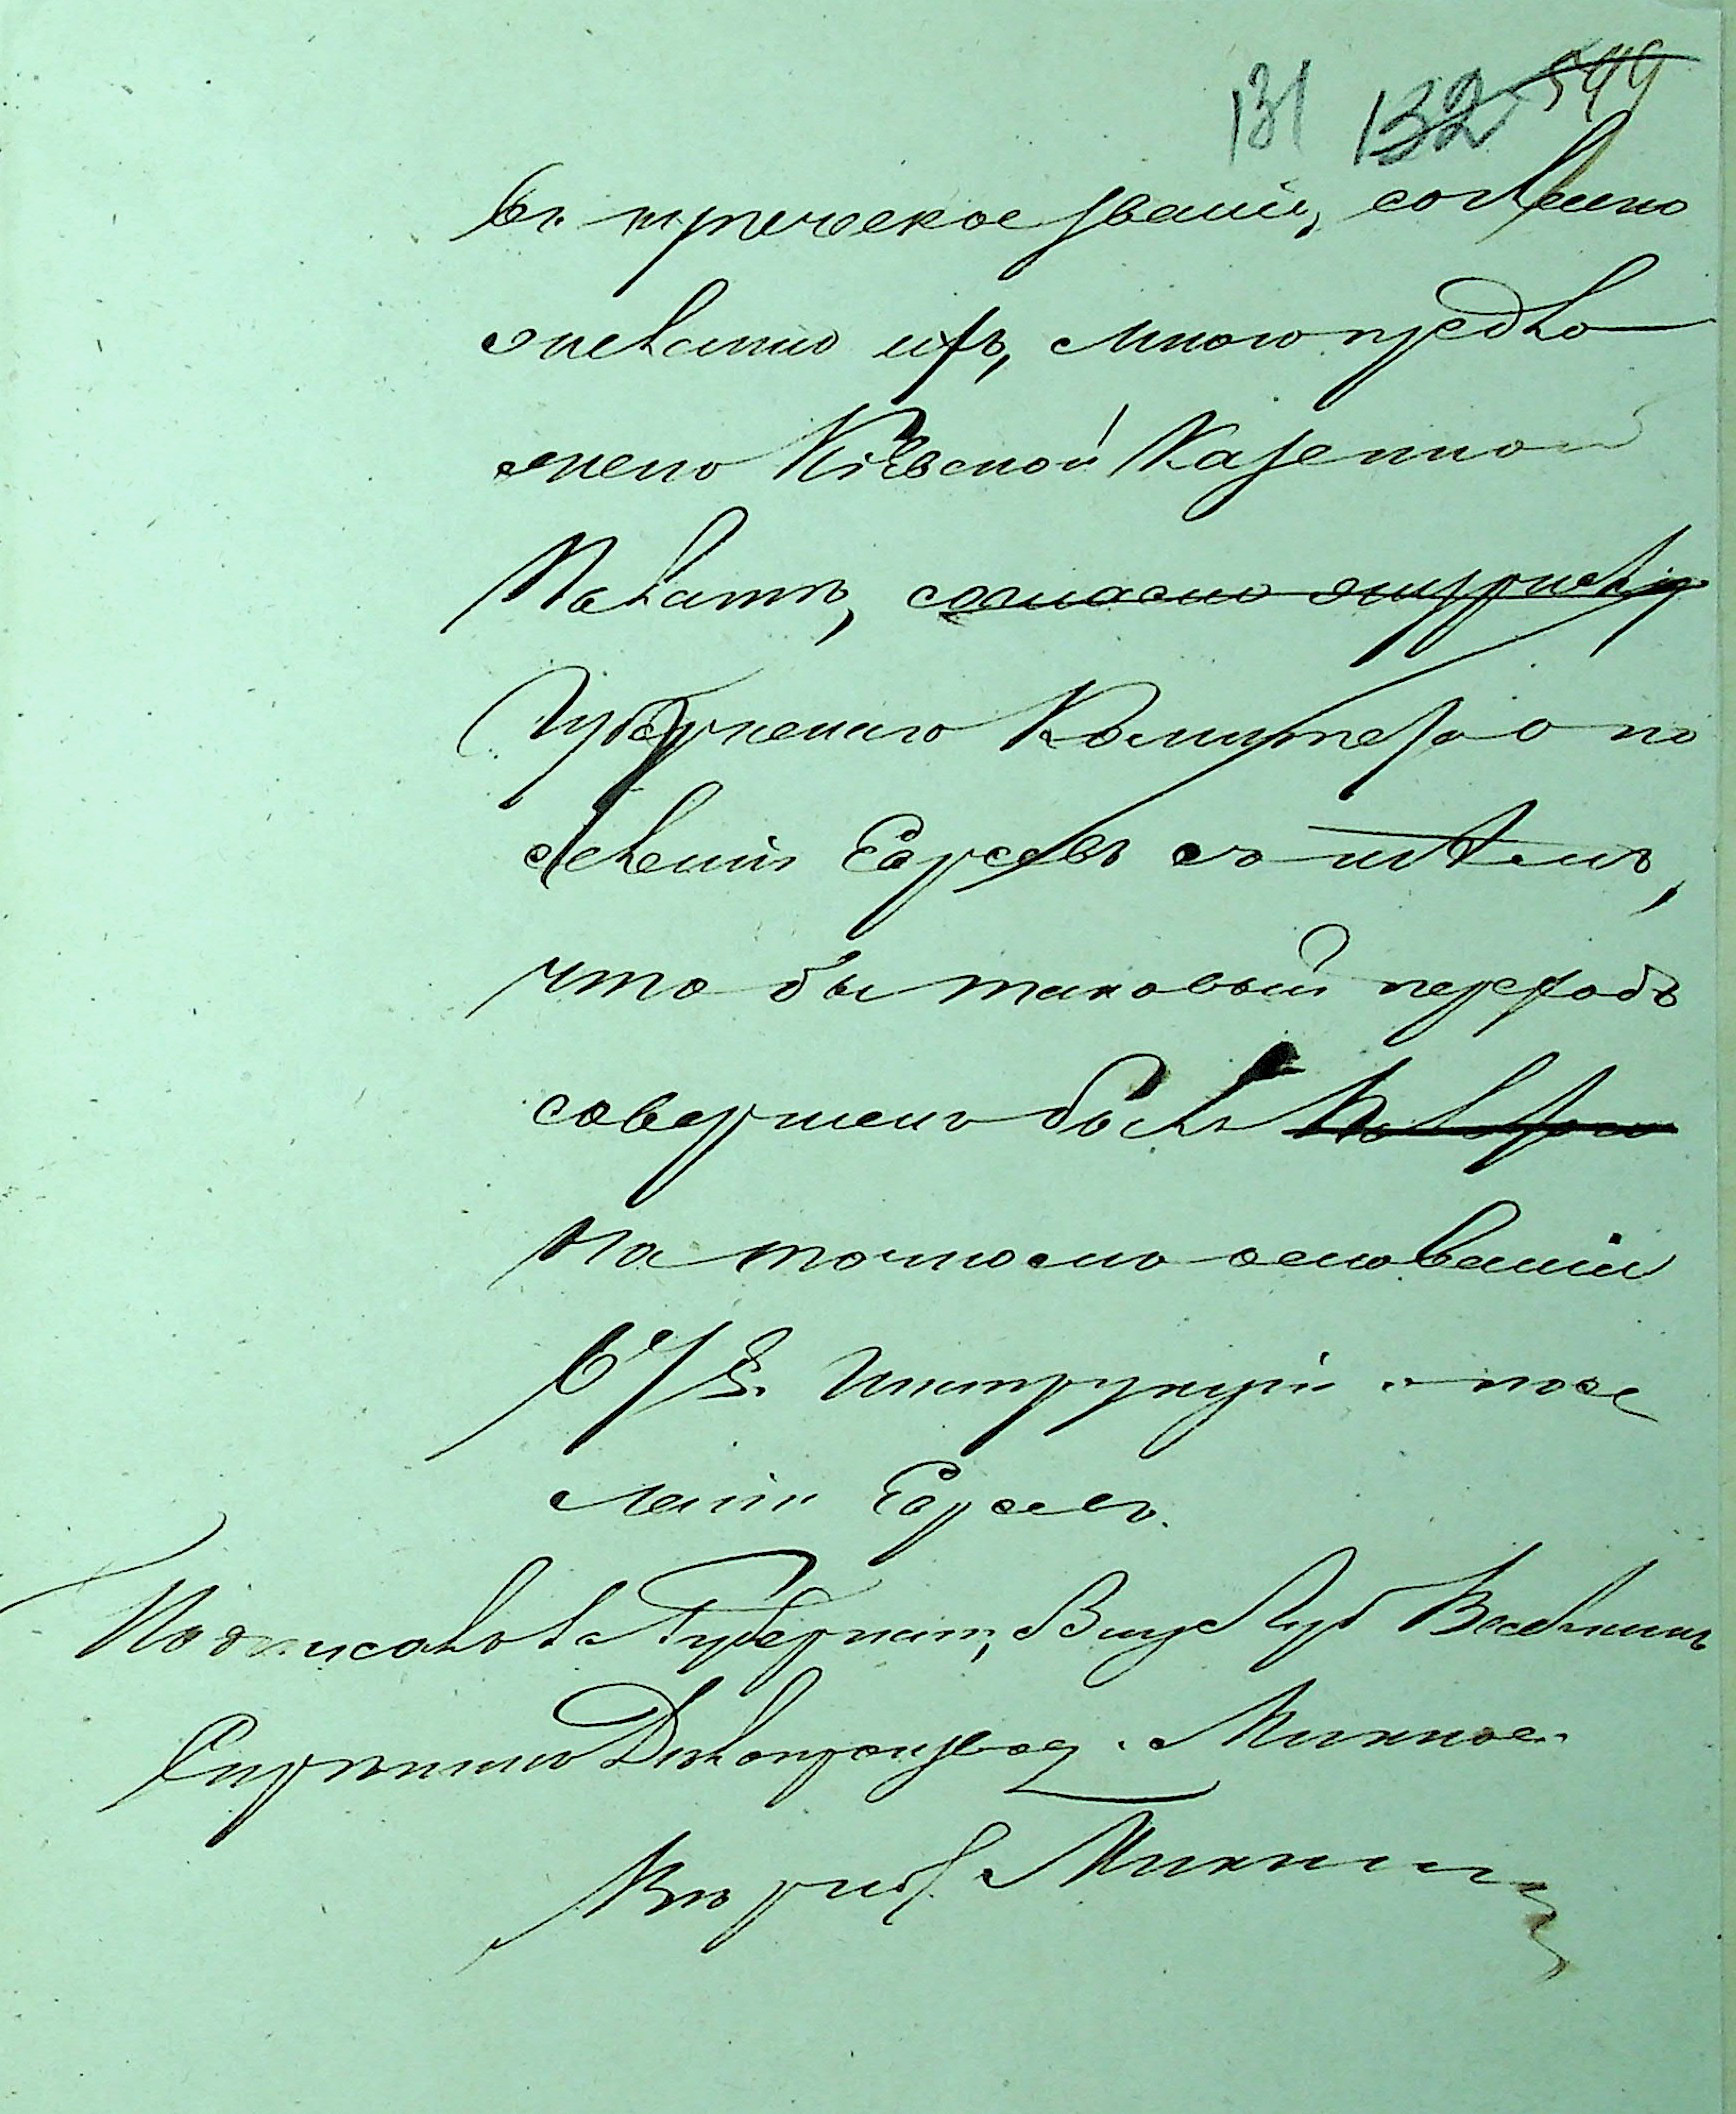 131 132 544
въ купеческое званіе, согласно
желанію ихъ, мною предло
жено Кіевской Казенной
Палатѣ, согласно
Губернскаго Комитета о по
селеніи Евреевъ съ тѣмъ,
что бы таковый переходъ
совершенъ былъ
на точномъ основаніи
67 §. Инструкціи о посе
леніи Евреевъ.
Подписалъ Губернат,
Скрѣпилъ Дѣлопроизвод.
Вѣрно